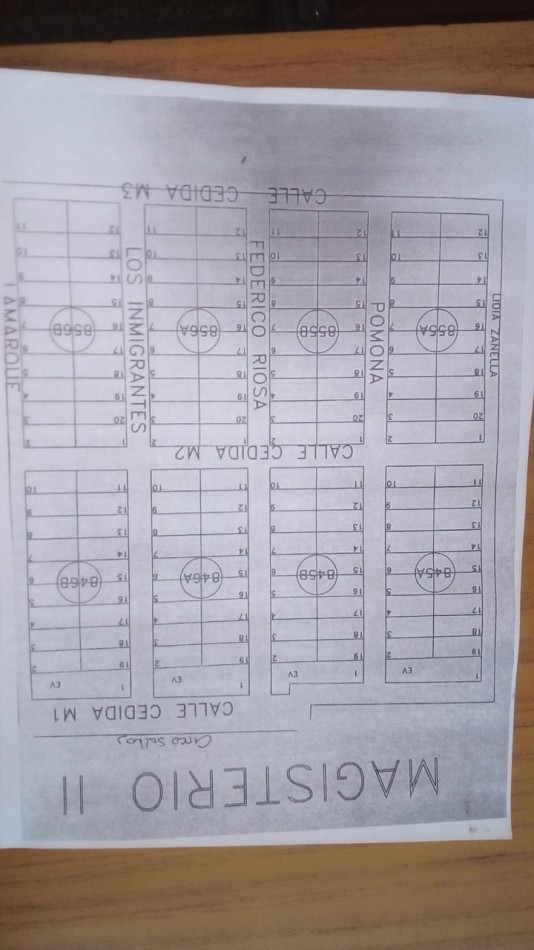 MAGISTERIO II
CALLE CEDIDA M1
1 EV 1 EV 1 EV 1 EV
19 2 19 2 19 2 19 2
18 3 18 3 18 3 18 3
17 4 17 4 17 4 17 4
16 5 16 5 16 5 16 5
15 845A 6 15 845B 6 15 846A 6 15 846B 6
14 7 14 7 14 7 14 7
13 8 13 8 13 8 13 8
12 9 12 9 12 9 12 9
11 10 11 10 11 10 11 10
CALLE CEDIDA M2
1 2 1 2 1 2 1 2
20 3 20 3 20 3 20 3
19 4 19 4 19 4 19 4
18 5 18 5 18 5 18 5
17 6 17 6 17 6 17 6
16 855A 7 16 855B 7 16 856A 7 16 856B 7
15 8 15 8 15 8 15 8
14 9 14 9 14 9 14 9
13 10 13 10 13 10 13 10
12 11 12 11 12 11 12 11
LIDIA ZANELLA
POMONA
FEDERICO RIOSA
LOS INMIGRANTES
LAMARQUE
CALLE CEDIDA M3